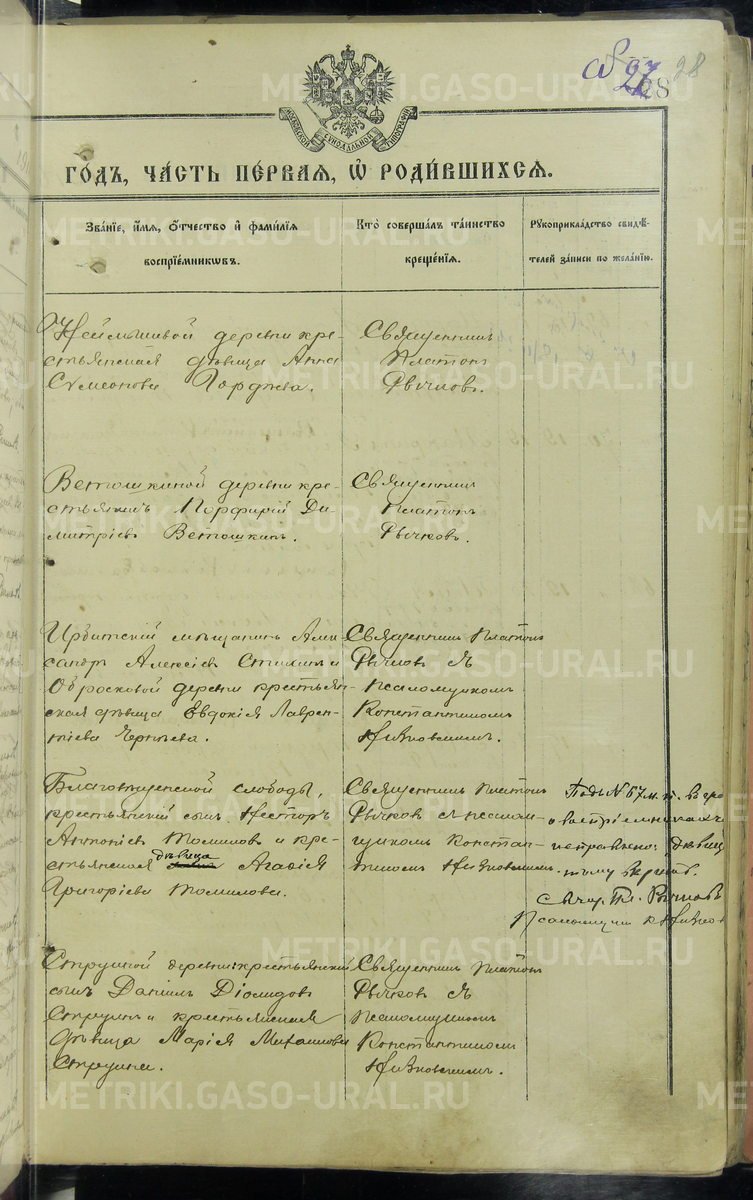 28
28
МОСКОВСКОЙ СѴНОДАЛЬНОЙ ТИПОГРАФІИ
ГО́ДЪ, ЧА́СТЬ ПЕ́РВАЯ, Ѡ҆ РОДИ́ВШИХСЯ.
Зва́нїе, и҆́мя, ѻ҆́тчество и҆ фами́лїя
воспрїе́мникѡвъ.
Кто̀ соверша́лъ та́инство
креще́нїя.
Рꙋкоприкла́дство свидѣ́-
телей за́писи по жела́нїю.
деревни кре-
стьянская дѣвица Анна
Сумеонова Гордѣева.
Священникъ
Платонъ
Рычковъ.
Ветошкиной деревни кре-
стьянинъ Порфирій Ди-
митріевъ Ветошкинъ.
Священникъ
Платонъ
Рычковъ.
Ирбитскій мѣщанинъ Алек-
сандръ Алексіевъ и
деревни крестьян-
ская дѣвица Евдокія Лаврен-
тіева
Священникъ Платонъ
Рычковъ съ
псаломщикомъ
Константиномъ
Благовѣщенской слободы,
крестьянскій сынъ Несторъ
Антоніевъ Томиловъ и кре-
стьянская дѣвица Агафія
Григоріева Томилова.
Священникъ Платонъ
Рычковъ съ псалом-
щикомъ Констан-
тиномъ
Подъ № 57 м. п. въ гра
о воспріемникахъ
исправлено: "дѣвица"
тому вѣрить.
Свящ. Пл. Рычковъ
Псаломщикъ К.
деревни крестьянскій
сынъ Даніилъ Діомидовъ
и крестьянская
дѣвица Марія Михаилова
Священникъ Платонъ
Рычковъ съ
псаломщикомъ
Константиномъ
METRIKI.GASO-URAL.RU